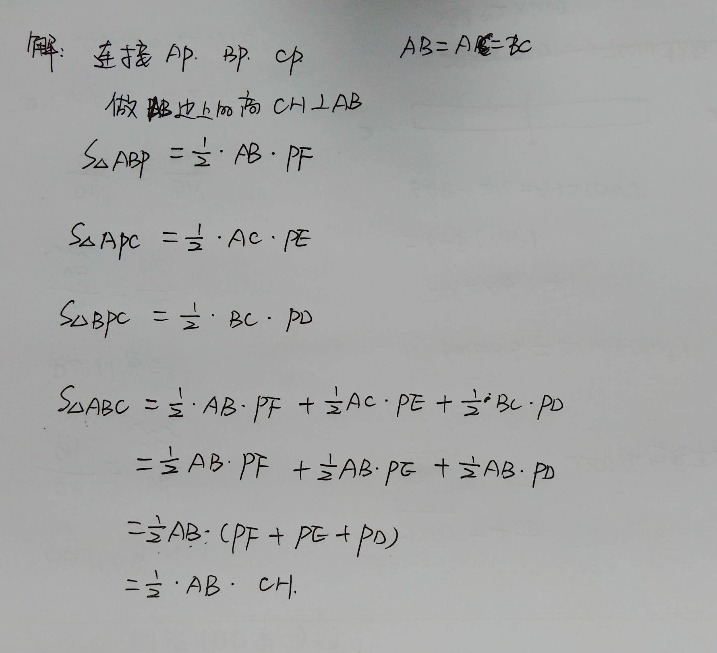 解: 连接 AP. BP. CP
AB=AC=BC
做AB边上的高 CH⊥AB
S△ABP = 1/2 · AB · PF
S△APC = 1/2 · AC · PE
S△BPC = 1/2 · BC · PD
S△ABC = 1/2 · AB · PF + 1/2 AC · PE + 1/2 · BC · PD
= 1/2 AB · PF + 1/2 AB · PE + 1/2 AB · PD
= 1/2 AB · (PF + PE + PD)
= 1/2 · AB · CH.